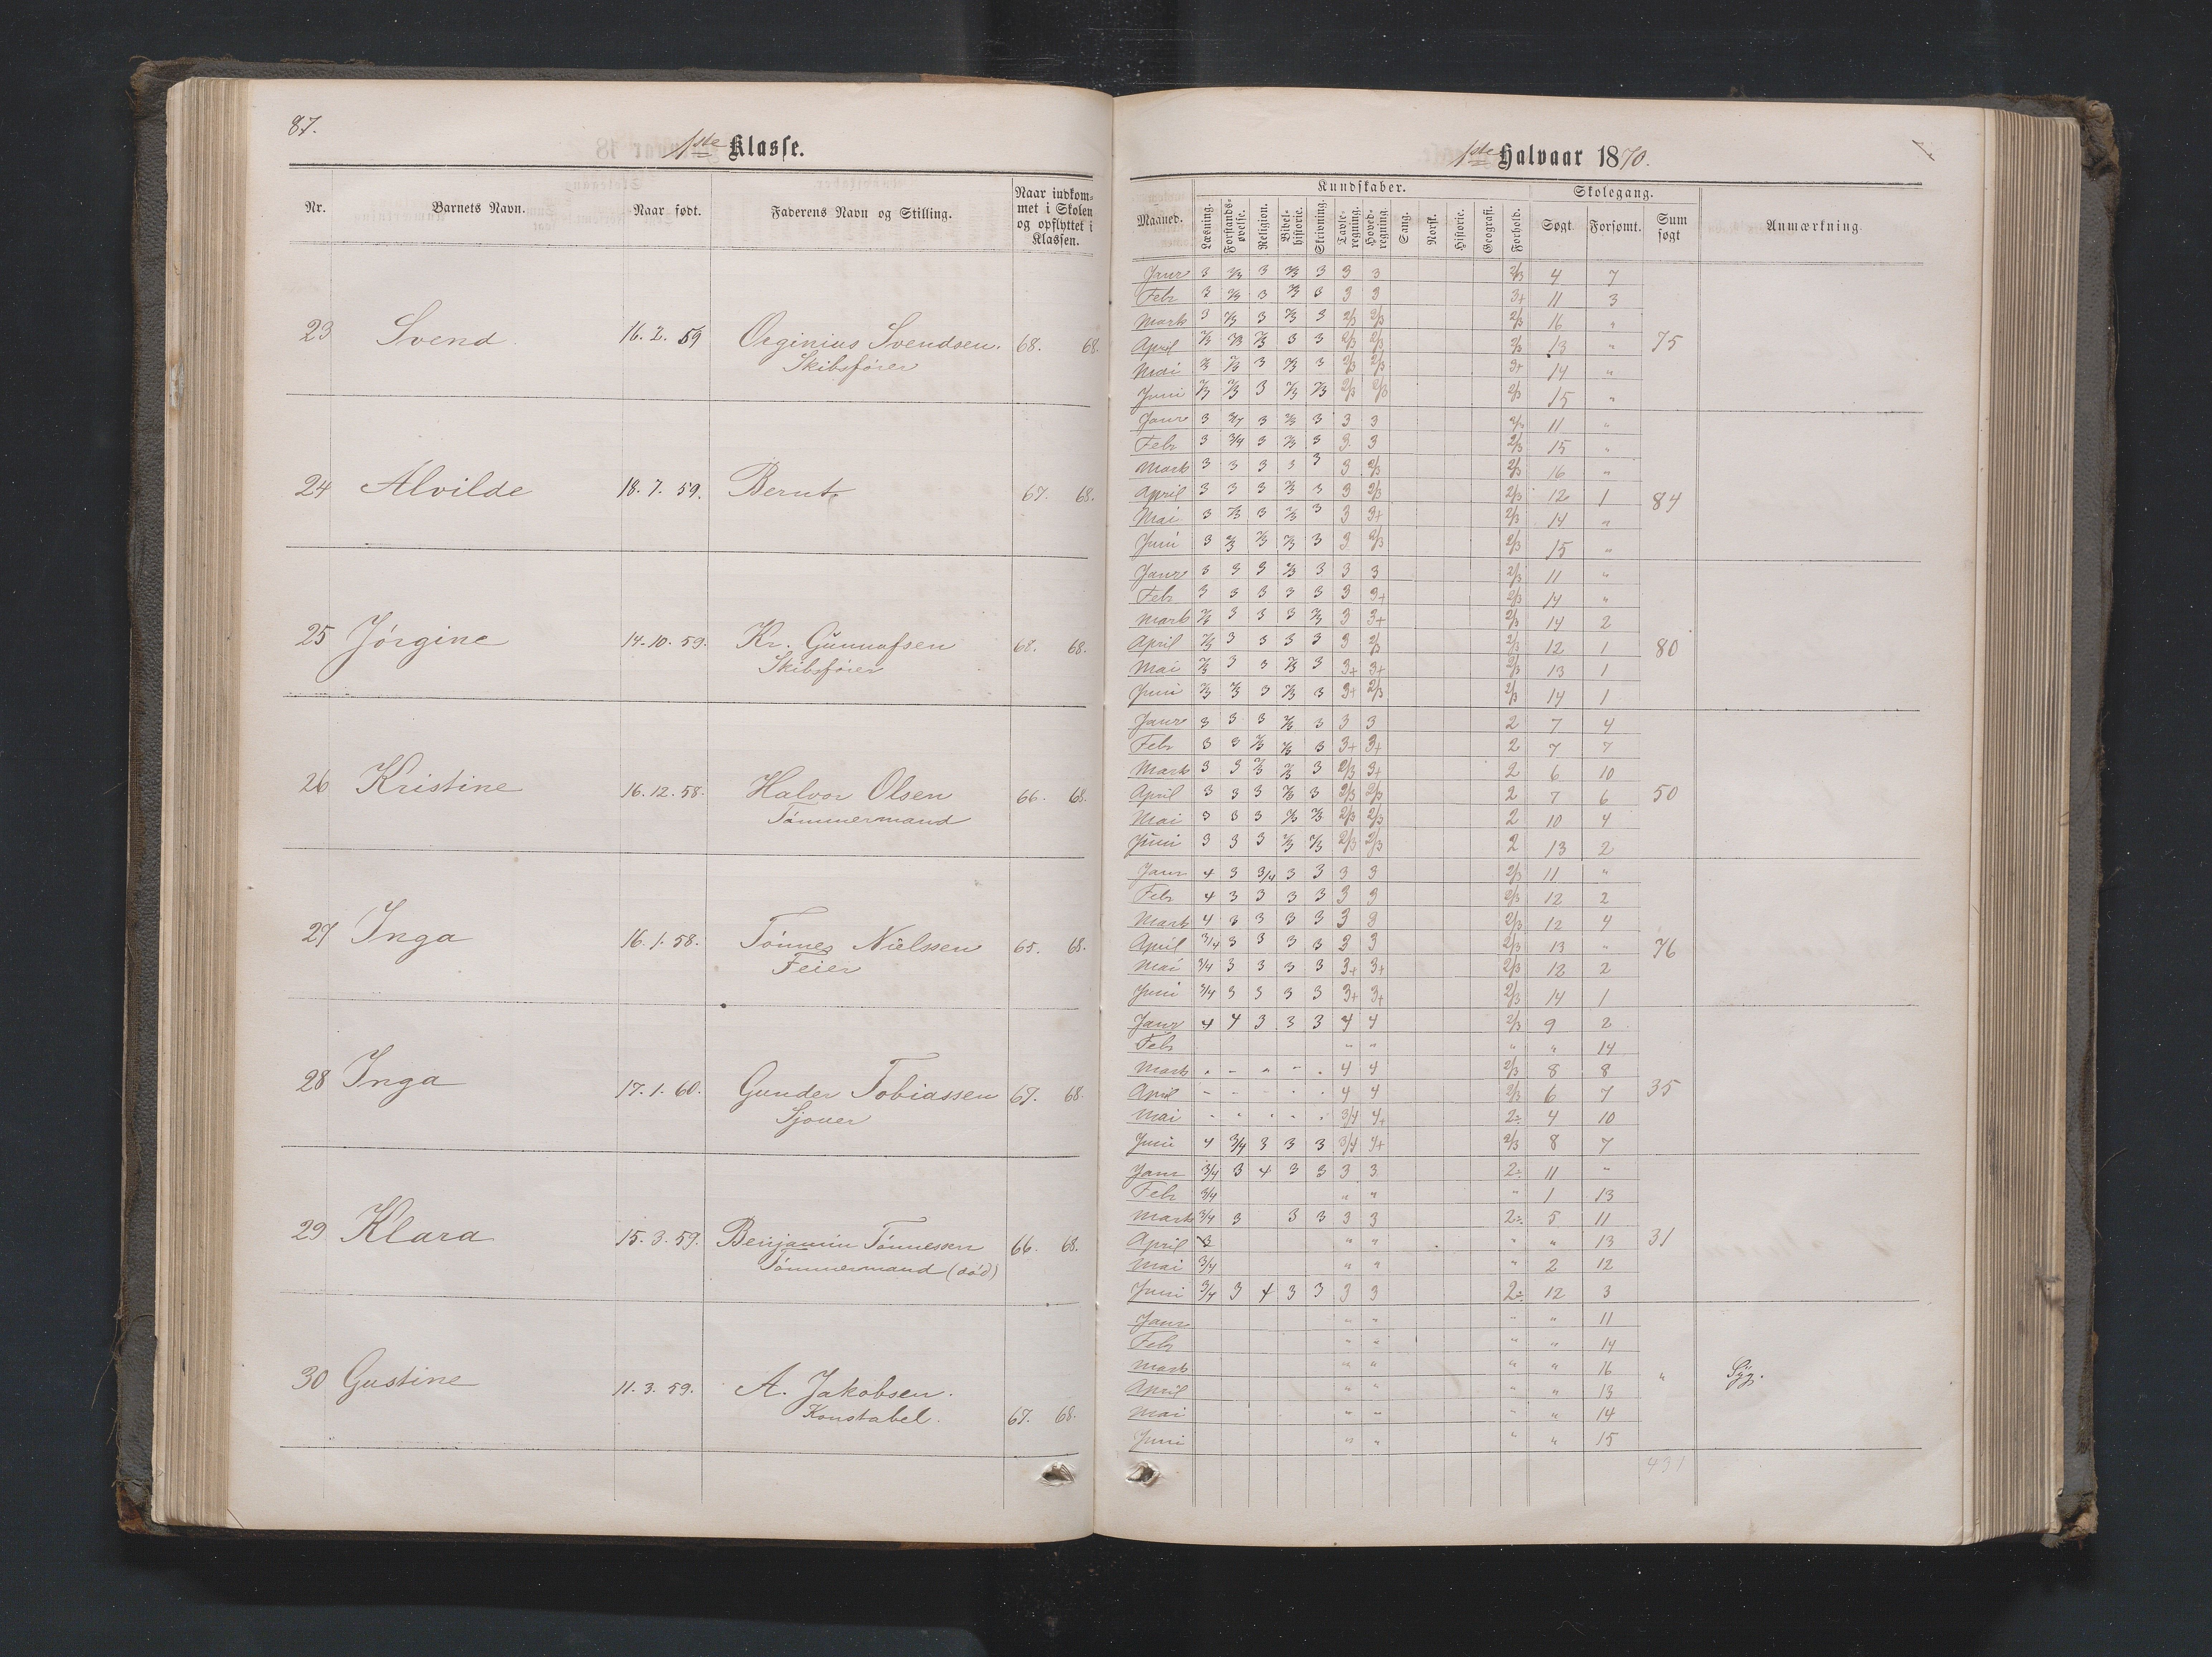 87.
1ste Klasse.
Nr. Barnets Navn. Naar født. Faderens Navn og Stilling. Naar indkommet i Skolen og opflyttet i Klassen.
23 Svend 16. 2. 59 Orginius Svendsen. 68. 68.
Skibsfører
24 Alvilde 18. 7. 59. Bernt 67. 68.
25 Jørgine 14. 10. 59. Kr. Gunnufsen 68. 68.
Skibsfører
26 Kristine 16. 12. 58. Halvor Olsen 66. 68.
Tømmermand
27 Inga 16. 1. 58. Tønnes Nielssen 65. 68.
Feier
28 Inga 17. 1. 60. Gunder Tobiassen 67. 68.
Sjouer
29 Klara 15. 3. 59. Benjamin Tønnessen 66. 68.
Tømmermand (død)
30 Gustine 11. 3. 59. A. Jakobsen. 67. 68.
Konstabel.
1ste Halvaar 1870.
Maaned. Kundskaber. Skolegang. Anmærkning.
Læsning. Forstandsøvelse. Religion. Bibelhistorie. Skrivning. Tavleregning. Hovedregning. Sang. Norsk. Historie. Geografi. Forhold. Søgt Forsømt. Sum søgt
Janr 3 2/3 3 2/3 3 3 3 2/3 4 7
Febr 3 2/3 3 2/3 3 3 3 3+ 11 3
Marts 3 2/3 3 2/3 3 2/3 2/3 2/3 16 "
April 2/3 2/3 2/3 3 3 2/3 2/3 2/3 13 " 75
Mai 2/3 2/3 3 2/3 3 2/3 2/3 3+ 14 "
Juni 2/3 2/3 3 2/3 2/3 2/3 2/3 2/3 15 "
Janr 3 3/4 3 2/3 3 3 3 2/3 11 "
Febr 3 3/4 3 2/3 3 3 3 2/3 15 "
Marts 3 3 3 3 3 3 2/3 2/3 16 "
April 3 3 3 2/3 3 3 2/3 2/3 12 1 84
Mai 3 2/3 3 2/3 3 3 3+ 2/3 14 "
Juni 3 2/3 2/3 2/3 3 3 2/3 2/3 15 "
Janr 3 3 3 2/3 3 3 3 2/3 11 "
Febr 3 3 3 3 3 3 3+ 2/3 14 "
Marts 2/3 3 3 3 2/3 3 3+ 2/3 14 2
April 2/3 3 3 3 3 3 2/3 2/3 12 1 80
Mai 2/3 3 3 2/3 3 3+ 3+ 2/3 13 1
Juni 2/3 2/3 3 2/3 3 3+ 2/3 2/3 14 1
Janr 3 3 3 2/3 3 3 3 2 7 4
Febr 3 3 2/3 2/3 3 3+ 3+ 2 7 7
Marts 3 3 2/3 2/3 3 2/3 3+ 2 6 10
April 3 3 3 2/3 3 2/3 2/3 2 7 6 50
Mai 3 3 3 2/3 2/3 2/3 2/3 2 10 4
Juni 3 3 3 2/3 2/3 2/3 2/3 2 13 2
Janr 4 3 3/4 3 3 3 3 2/3 11 "
Febr 4 3 3 3 3 3 3 2/3 12 2
Marts 4 3 3 3 3 3 3 2/3 12 4
April 3/4 3 3 3 3 3 3 2/3 13 " 76
Mai 3/4 3 3 3 3 3+ 3+ 2/3 12 2
Juni 3/4 3 3 3 3 3+ 3+ 2/3 14 1
Janr 4 4 3 3 3 4 4 2/3 9 2
Febr " " " " 14
Marts " - " - " 4 4 2/3 8 8
April - - - " " 4 4 2/3 6 7 35
Mai - " " " " 3/4 4+ 2÷ 4 10
Juni 4 3/4 3 3 3 3/4 4+ 2/3 8 7
Janr 3/4 3 4 3 3 3 3 2÷ 11 "
Febr 3/4 " " " 1 13
Marts 3/4 3 3 3 3 3 2÷ 5 11
April " " " " 13 31
Mai 3/4 " " " 2 12
Juni 3/4 3 4 3 3 3 3 2÷ 12 3
Janr " " " " 11
Febr " " " " 14
Marts " " " " 16 " Syg.
April " " " " 13
Mai " " " " 14
Juni " " " " 15
431